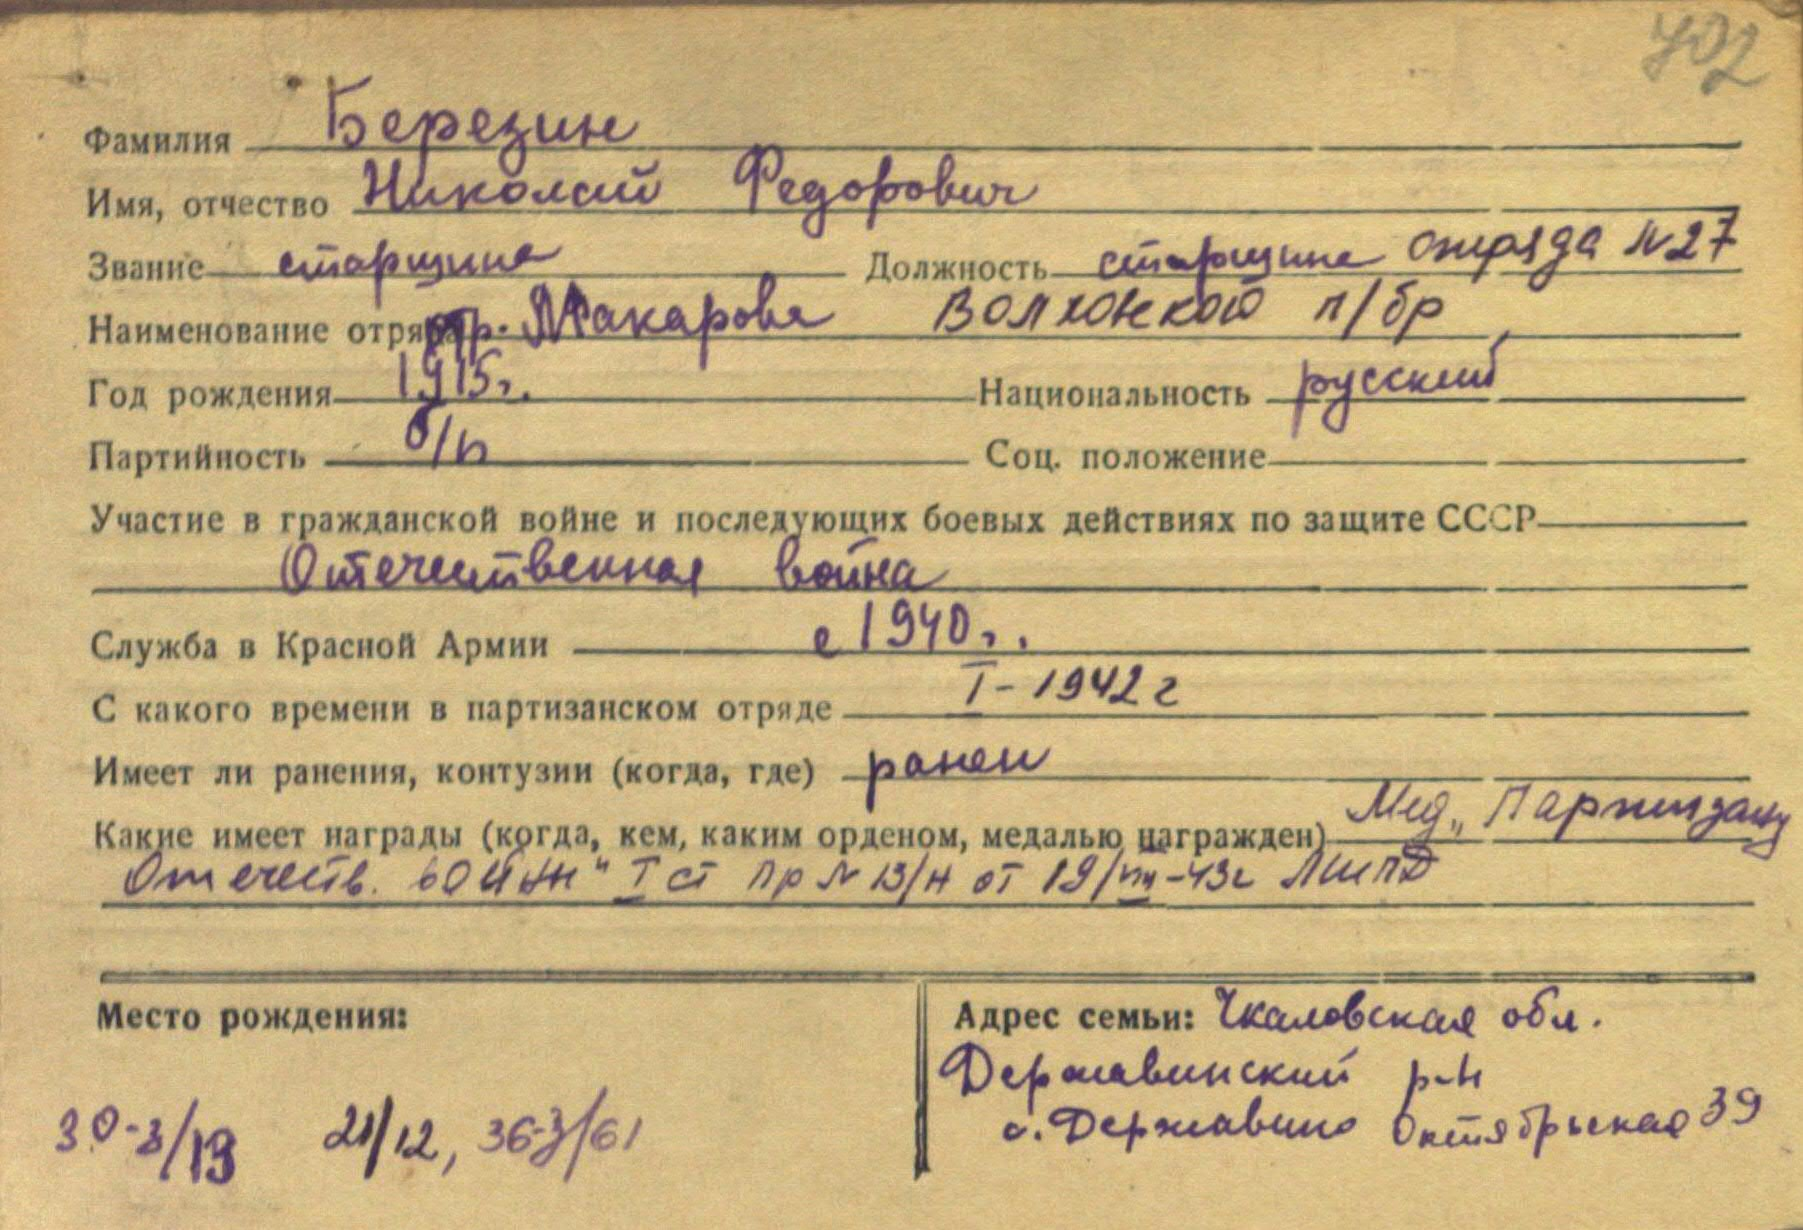 702
Фамилия Березин
Имя, отчество Николай Федорович
Звание старшина Должность старшина отряда №27
Наименование отряда отр. Макарова Волховской п/бр
Год рождения 1915г. Национальность русский
Партийность б/п Соц. положение
Участие в гражданской войне и последующих боевых действиях по защите СССР
Отечественная война
Служба в Красной Армии с 1940г.
С какого времени в партизанском отряде I-1942 г
Имеет ли ранения, контузии (когда, где) ранен
Какие имеет награды (когда, кем, каким орденом, медалью награжден) Мед „Партизану
Отечеств. войны" I ст пр № 13/н от 19/VIII-43г ЛШПД
Место рождения:
Адрес семьи: Чкаловская обл.
Державинский р-н
с. Державино Октябрьская 39
30-3/13 21/12, 36-3/61